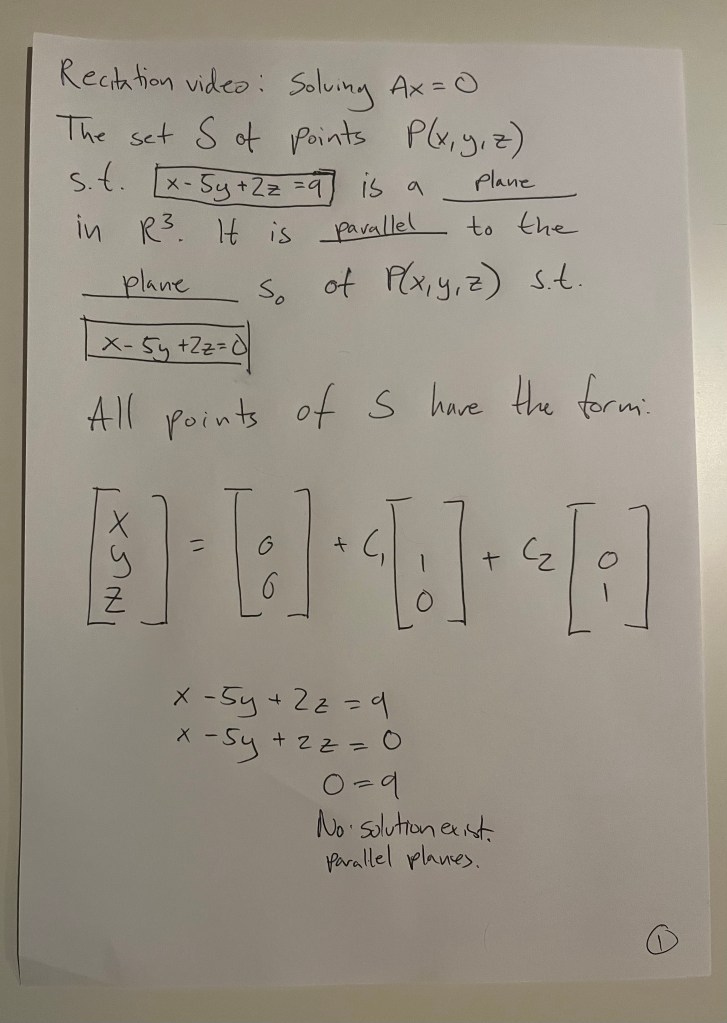 Recitation video: Solving Ax = 0
The set S of points P(x,y,z)
s.t. x - 5y + 2z = 9 is a plane
in R³. It is parallel to the
plane S₀ of P(x,y,z) s.t.
x - 5y + 2z = 0
All points of S have the form:
[x y z] = [0 0] + C₁ [1 0] + C₂ [0 1]
x - 5y + 2z = 9
x - 5y + 2z = 0
0 = 9
No solution exist.
parallel planes.
1